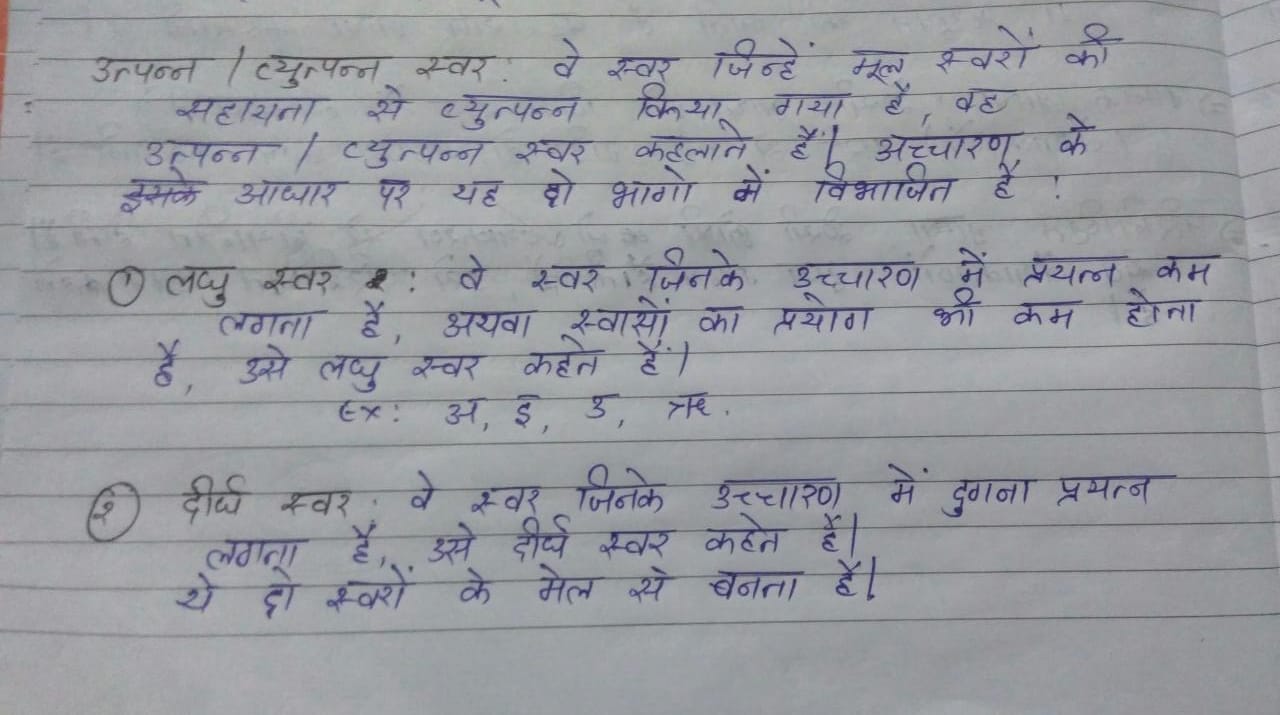 उत्पन्न / व्युत्पन्न स्वर : वे स्वर जिन्हें मूल स्वरों की
सहायता से व्युत्पन्न किया गया है, वह
उत्पन्न / व्युत्पन्न स्वर कहलाते हैं। अच्चारण के
इसके आधार पर यह दो भागो में विभाजित है :
① लघु स्वर : वे स्वर जिनके उच्चारण में प्रयत्न कम
लगता है, अथवा स्वासों का प्रयोग भी कम होता
है, उसे लघु स्वर कहते हैं।
Ex: अ, इ, उ, ऋ.
② दीर्घ स्वर : वे स्वर जिनके उच्चारण में दुगना प्रयत्न
लगता है, उसे दीर्घ स्वर कहते है।
ये दो स्वरों के मेल से बनता है।